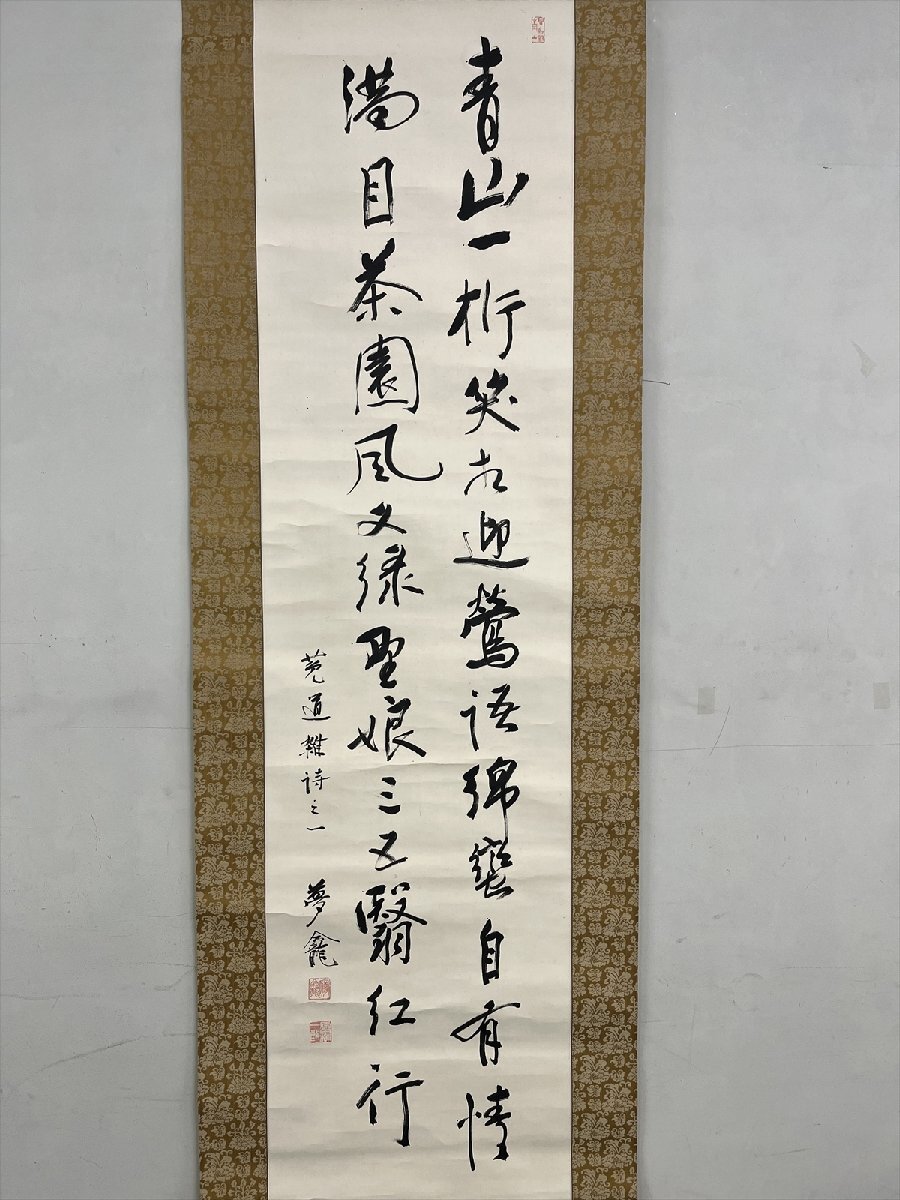 青山一桁笑相迎鶯語綿蠻自有情
満目茶園風又緑娘三五翳紅行
菟道雜詩之一 夢龕